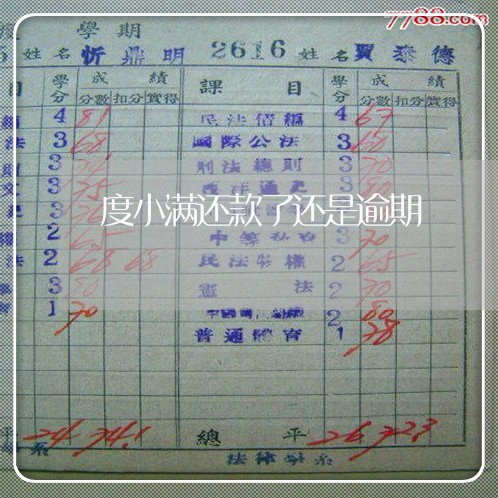 7788.com
學期
姓名 忻鼎明 2616 姓名 賈泰德
目 學分 成績 課目 學分 成績
分數 扣分 實得 分數 扣分 實得
4 81 民法債編 4 67
法 3 68 國際公法 3 60
3 刑法總則 3 70
3 75 3 80
度小满还款了还是逾期
2 65 中等 3 70
法 2 68 68 民法物權 2 65
3 80 憲法 2 70
1 70 2 80
普通體育 1 78
平 24 74.1 總平 26 72.3
系 法律學系